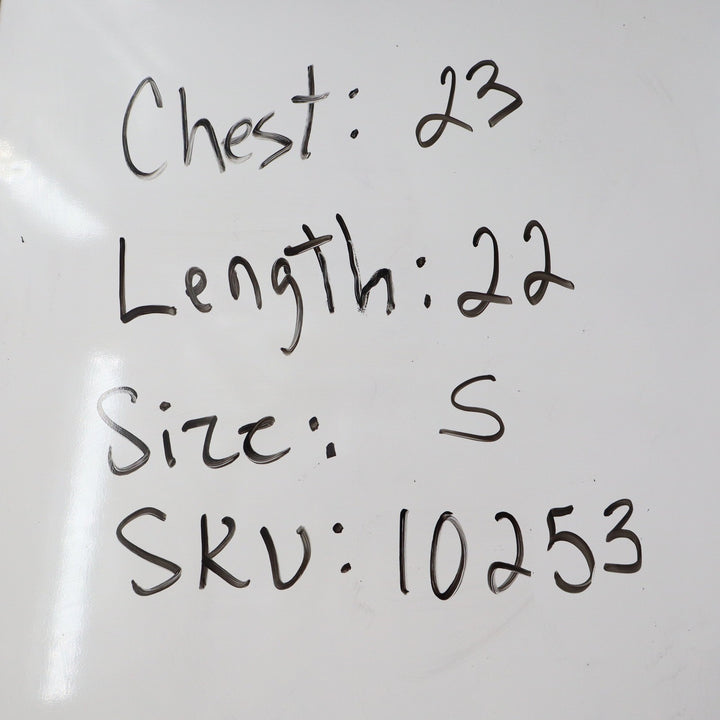 Chest: 23
Length: 22
Size: S
SKU: 10253